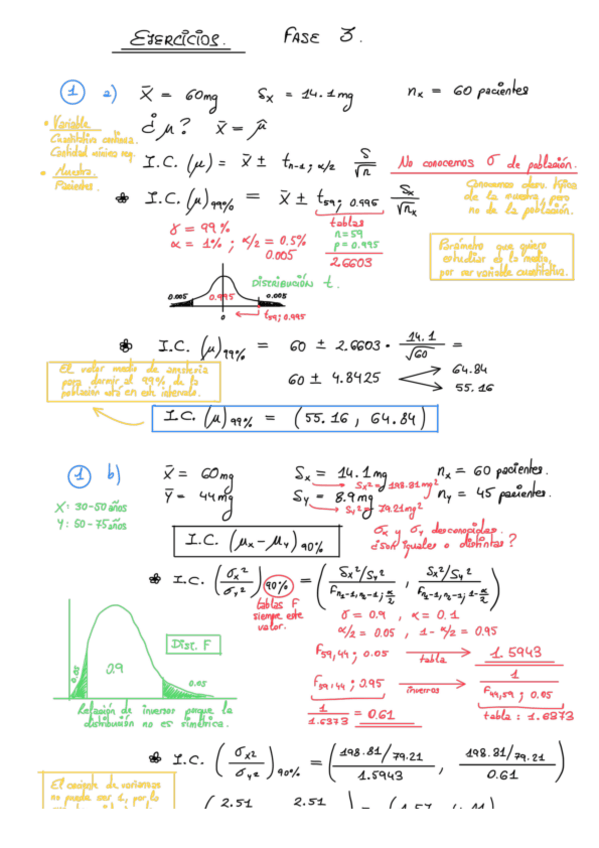 EJERCICIOS. FASE 3.
① a) X̄ = 60mg Sx = 14.1mg nx = 60 pacientes
• Variable
Cuantitativa continua.
Cantidad mínima req.
• Muestra.
Pacientes.
¿μ? X̄ = μ̂
I.C. (μ) = X̄ ± t n-1; α/2 S/√n
No conocemos σ de población.
Conocemos desv. típica
de la muestra, pero
no de la población.
* I.C. (μ)99% = X̄ ± t59; 0.995 Sx/√nx
γ = 99%
α = 1% ; α/2 = 0.5%
0.005
tablas
n=59
p=0.995
2.6603
Parámetro que quiero
estudiar es la media,
por ser variable cuantitativa.
DISTRIBUCIÓN t.
0.005 0.995 0.005
0 t59; 0.995
* I.C. (μ)99% = 60 ± 2.6603 · 14.1/√60 =
60 ± 4.8425
64.84
55.16
El valor medio de anestesia
para dormir al 99% de la
población está en este intervalo.
I.C. (μ)99% = (55.16, 64.84)
① b) X̄ = 60mg Sx = 14.1mg nx = 60 pacientes.
Sx² = 198.81mg²
Ȳ = 44mg Sy = 8.9mg ny = 45 pacientes.
Sy² = 79.21mg²
X: 30-50 años
Y: 50-75 años
I.C. (μx - μy) 90%
σx y σy desconocidas.
¿son iguales o distintas?
* I.C. (σx²/σy²) 90% = (Sx²/Sy² / Fn1-1,n2-1; α/2 , Sx²/Sy² / Fn1-1,n2-1; 1-α/2)
tablas F
siempre este
valor.
γ = 0.9 , α = 0.1
α/2 = 0.05 , 1-α/2 = 0.95
Dist. F
0.05 0.9 0.05
F59,44; 0.05 tabla 1.5943
F59,44; 0.95 inverros 1/F44,59; 0.05
1/1.6373 = 0.61
tabla: 1.6373
Relación de inversor porque la
distribución no es simétrica.
* I.C. (σx²/σy²) 90% = (198.81/79.21 / 1.5943 , 198.81/79.21 / 0.61)
El cociente de varianzas
no puede ser 1, por lo
(2.51 2.51